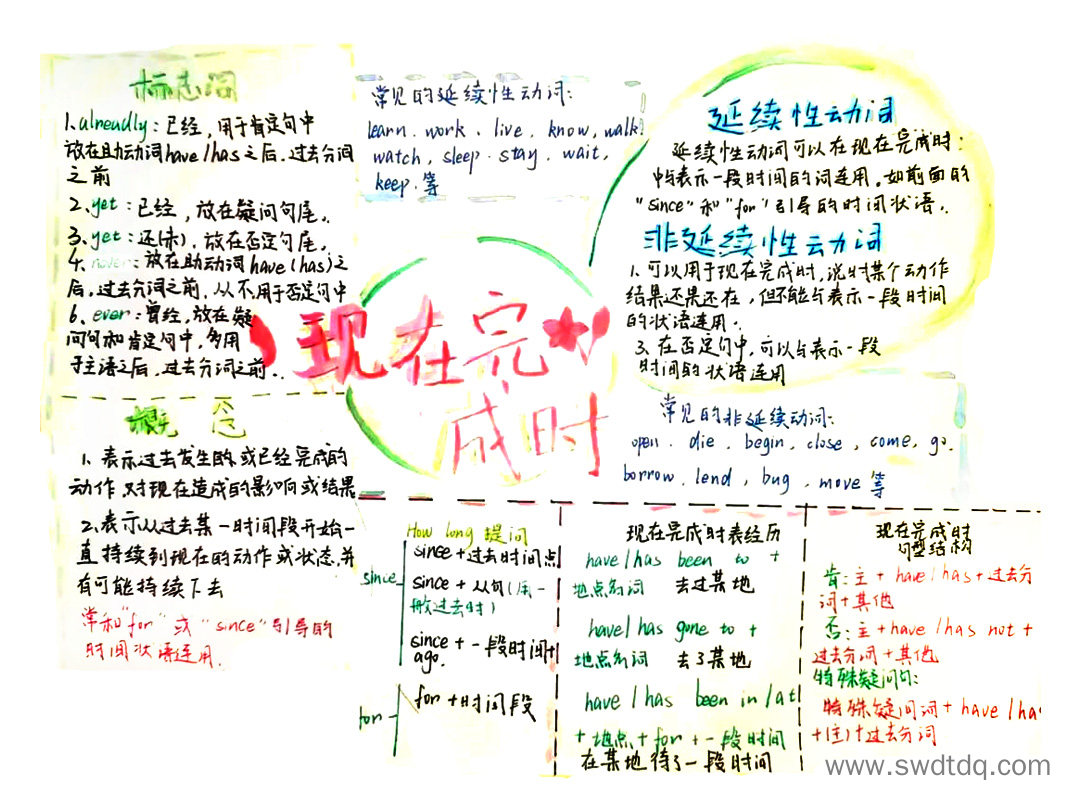 标志词
1. alreadly：已经，用于肯定句中
放在助动词have/has之后，过去分词
之前
2. yet：已经，放在疑问句尾。
3. yet：还(未)，放在否定句尾。
4. never：放在助动词have(has)之
后，过去分词之前，从不用于否定句中
6. ever：曾经，放在疑
问句和肯定句中，多用
于主语之后，过去分词之前..
概念
1、表示过去发生的或已经完成的
动作 对现在造成的影响或结果
2.表示从过去某一时间段开始一
直持续到现在的动作或状态并
有可能持续下去
常和"for"或"since"引导的
时间状语连用.
常见的延续性动词：
learn . work . live . know , walk
watch , sleep . stay . wait ,
keep . 等
延续性动词
延续性动词可以在现在完成时：
中与表示一段时间的词连用。如前面的
"since"和"for"引导的时间状语。
非延续性动词
1、可以用于现在完成时，说时某个动作
结果还果还在，但不能与表示一段时间
的状语连用。
3、在否定句中，可以与表示一段
时间的状语连用
现在完
成时
常见的非延续动词：
open . die . begin , close , come , go
borrow . lend , bug , move 等
How long 提问
since
since + 过去时间点
since + 从句(用一
般过去时)
since + 一段时间+
ago.
for
for +时间段
现在完成时表经历
have/has been to +
地点名词 去过某地
have/has gone to +
地点名词 去了某地
have/has been in/at
+地点+for+一段时间
在某地待了一段时间
现在完成时
句型结构
肯：主+have/has+过去分
词+其他
否：主+have/has not+
过去分词+其他
特殊疑问句：
特殊疑问词+have/ha
+(主)+过去分词
www.swdtdq.com